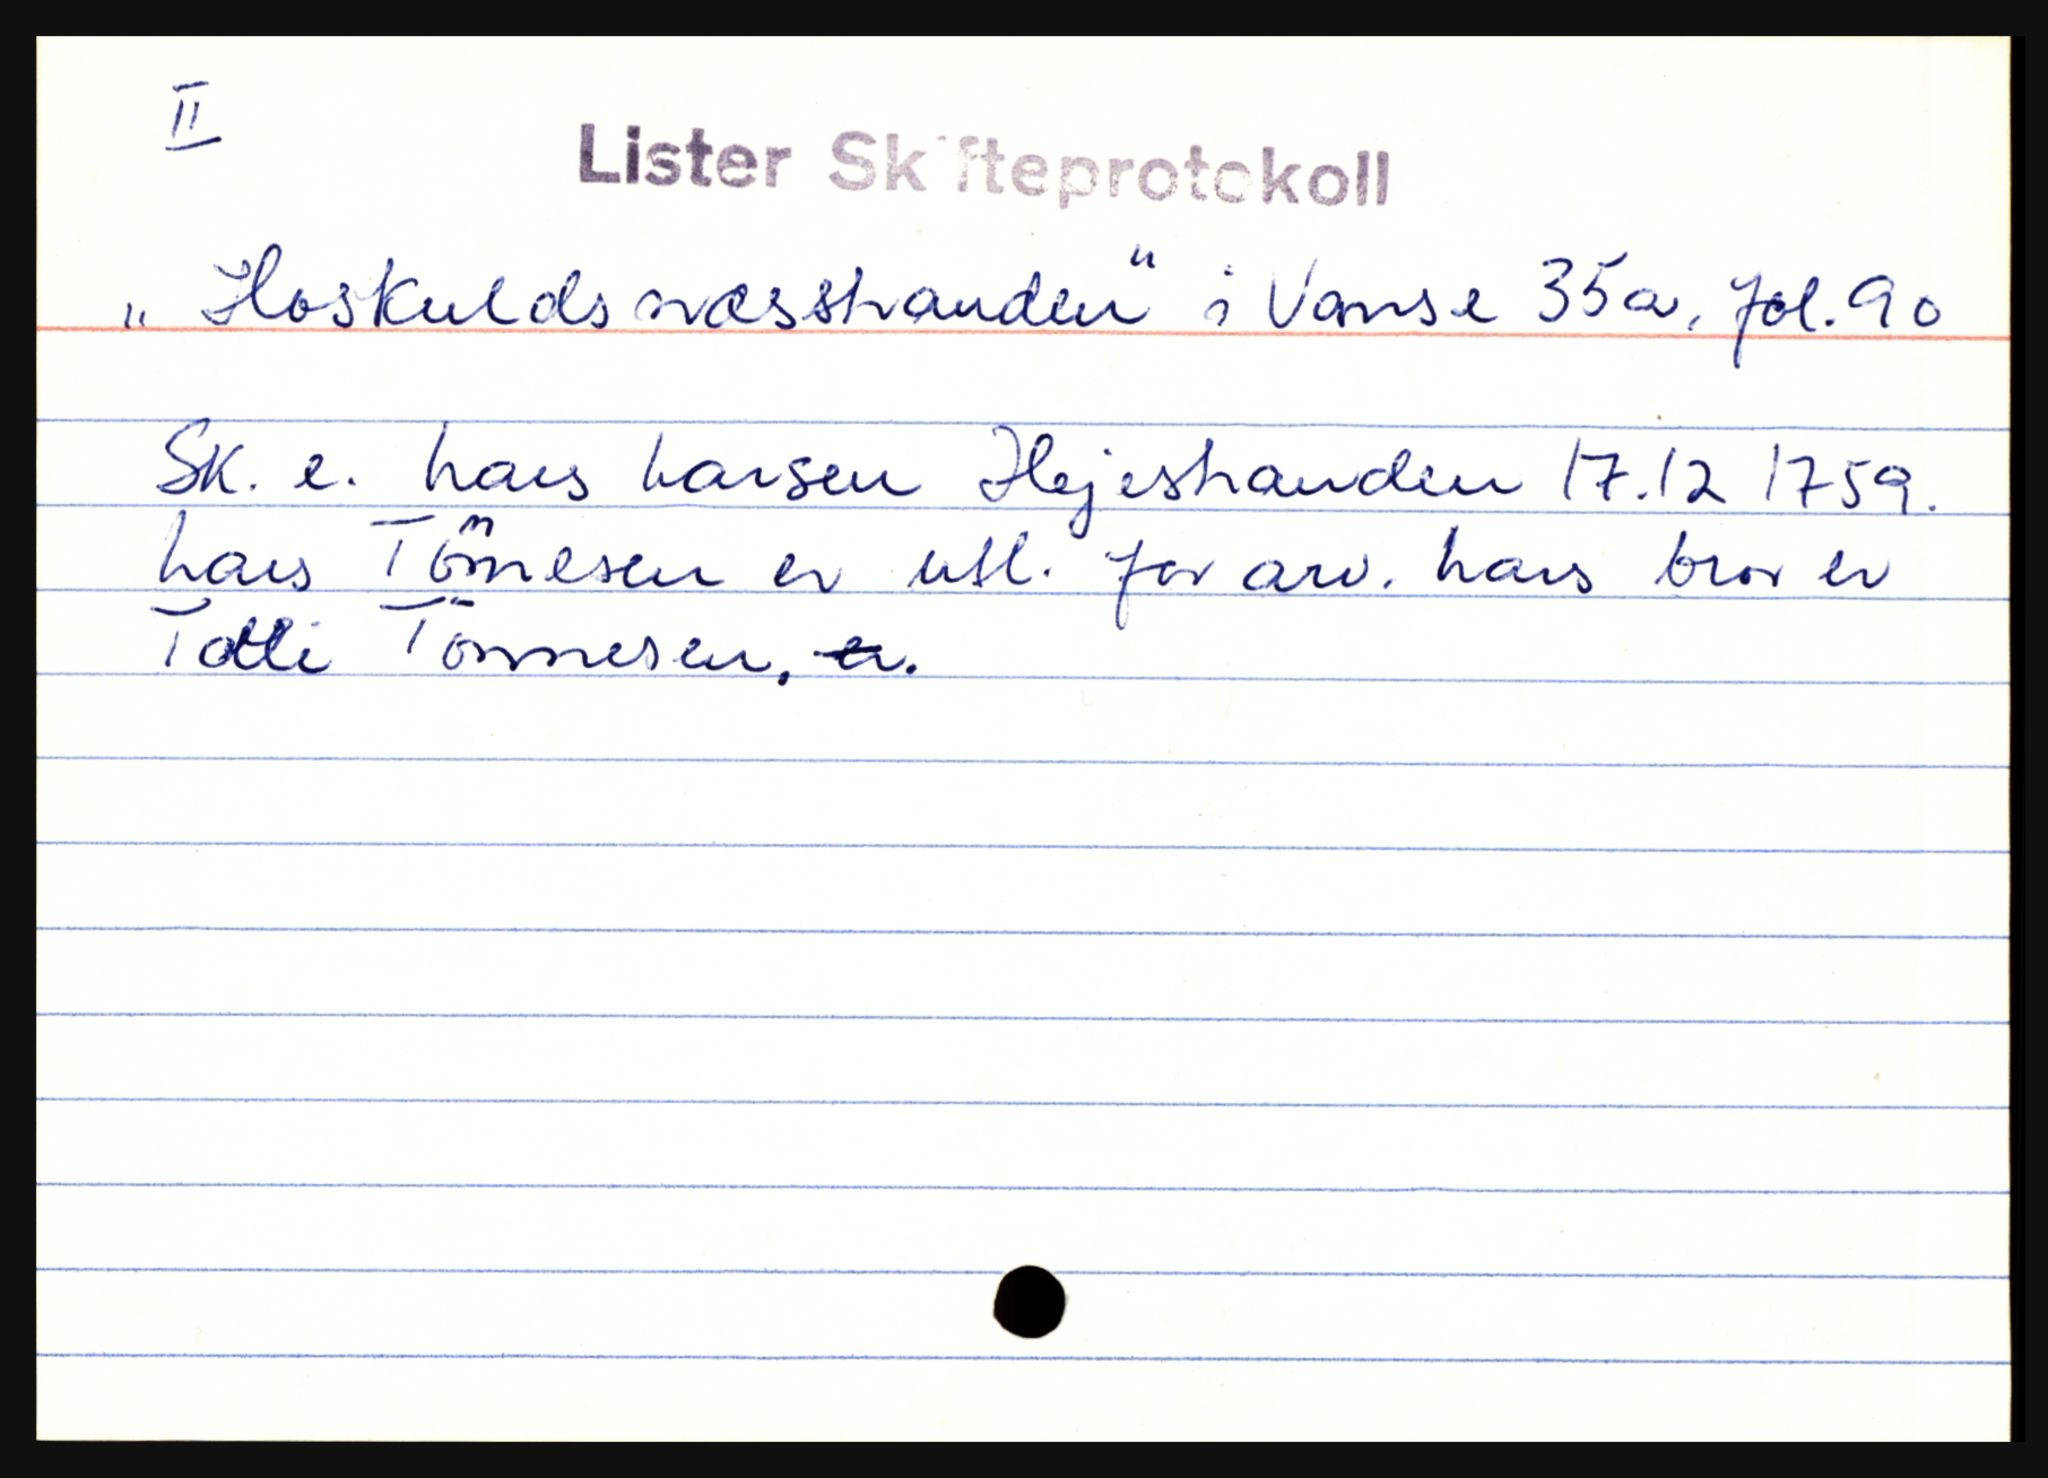 II
Lister Skifteprotokoll
„Hoskuldsnæsstranden" i Vanse 35a, fol. 90
Sk. e. Lars Larsen Hejestranden 17.12 1759.
Lars Tönnesen er utl. for arv. Lars bror er
Tolli Tönnesen, er.